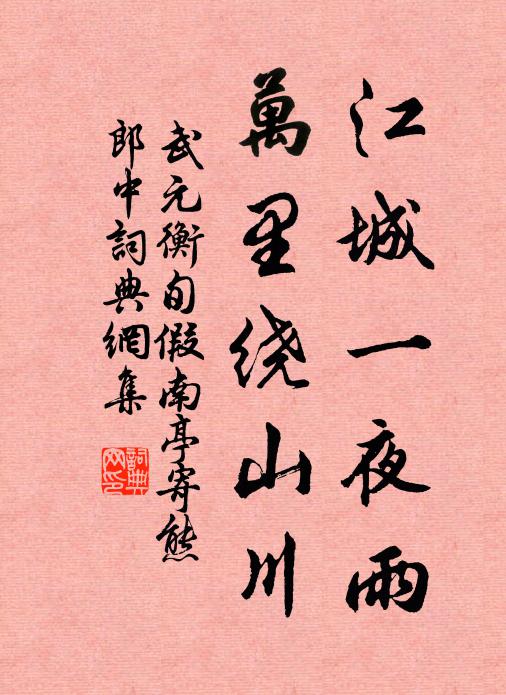 江城一夜雨
萬里绕山川
武元衡旬假南亭寄熊
郎中詞典網集
詞典
网印